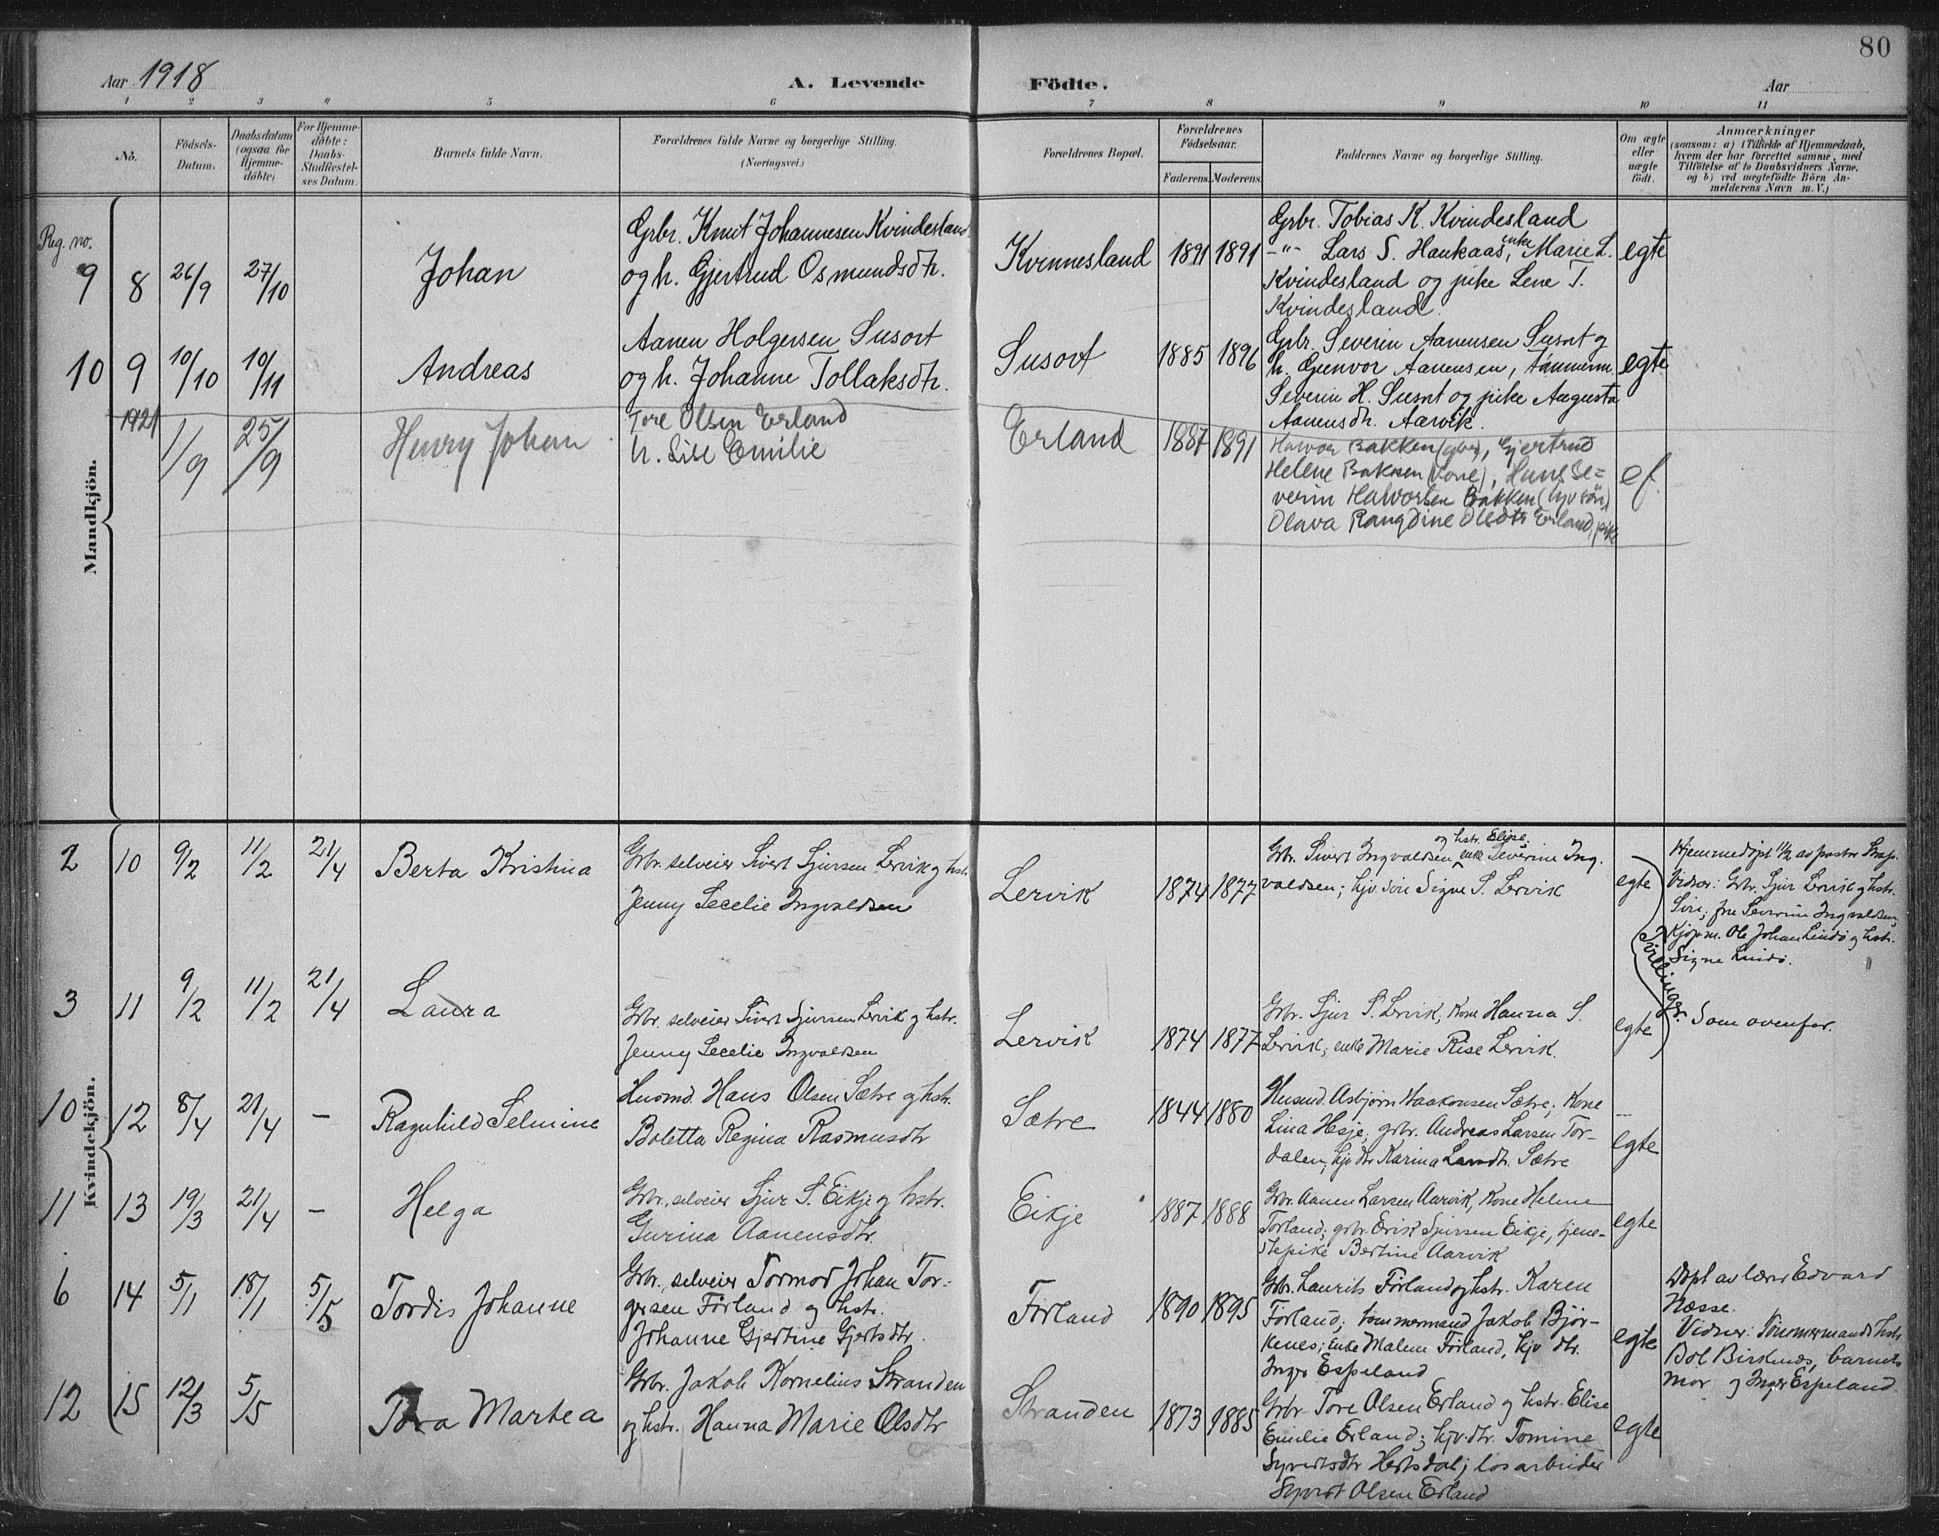 80
Aar 1918
A. Levende Födte.
Aar
1 2 3 4 5 6 7 8 9 10 11
No.
Födsels-
Datum.
Daabsdatum
(ogsaa for
Hjemme-
döbte)
For Hjemme-
döbte:
Daabs-
Stadfæstel-
ses Datum.
Barnets fulde Navn.
Forældrenes fulde Navne og borgerlige Stilling.
(Næringsvei.)
Forældrenes Bopæl.
Forældrenes
Födselsaar.
Faderens. Moderens.
Faddernes Navne og borgerlige Stilling.
Om ægte
eller
uægte
født.
Anmærkninger
(saasom: a) i Tilfælde af Hjemmedaab,
hvem der har forrettet samme, med
Tilföielse af to Daabsvidners Navne,
og b) ved uægtefödte Börn An-
melderens Navn m. V.)
Mandkjön.
Reg. no.
9 8 26/9 27/10
Johan
Grbr. Knut Johannesen Kvindesland
og h. Gjertrud Osmundsdtr.
Kvinnesland 1891 1891
Grbr. Tobias K. Kvindesland
-"- Lars S. Haukaas, enke Marie L.
Kvindesland og pike Lene T.
Kvindesland.
egte
10 9 10/10 10/11
Andreas
Aanen Holgersen Susort
og h. Johanne Tollaksdtr.
Susort 1885 1896
Grbr. Severin Aanensen Susort og
h. Gunvor Aanensen, tømmerm.
Severin H. Susort og pike Augusta
Aanensdtr. Aarvik.
egte
1921 1/9 25/9
Henry Johan
Tore Olsen Erland
h. Lise Emilie
Erland 1887 1891
Halvor Bakken (gbr), Gjertrud
Helene Bakken (kone), Hans Se=
verin Halvorsen Bakken (hjv søn)
Olava Ragndine Olsdtr Erland, pike
ef.
Kvindekjön.
2 10 9/2 11/2 21/4
Berta Kristina
Grbr. selveier Sivert Sjursen Lervik og hstr.
Jenny Secelie Ingvaldsen
Lervik 1874 1877
og hstr. Elise
Grbr. Sivert Ingvaldsen, enke Severine Ing.
valdsen; hjv. søn Signe S. Lervik
egte
Tvillinger.
Hjemmedøpt 11/2 av pastor Strøp.
Vidner: Grbr. Sjur Lervik og hstr.
Siri; fru Severine Ingvaldsen,
Kjøpm. Ole Johan Lindø og hstr.
Signe Lindø.
3 11 9/2 11/2 21/4
Laura
Grbr. selveier Sivert Sjursen Lervik og hstr.
Jenny Secelie Ingvaldsen
Lervik 1874 1877
Grbr. Sjur S. Lervik, Kone Hanna S.
Lervik; enke Marie Rise Lervik.
egte
Som ovenfor.
10 12 8/4 21/4 —
Ragnhild Selmine
Husmd. Hans Olsen Sætre og hstr.
Boletta Regina Rasmusdtr
Sætre 1844 1880
Husmd. Asbjørn Haakonsen Sætre; Kone
Lina Hesje; grbr. Andreas Larsen Tor-
dalen; hjv dtr Karina Larsdtr. Sætre
egte
11 13 19/3 21/4 —
Helga
Grbr. selveier Sjur S. Eikje og hstr.
Gurina Aanensdtr.
Eikje 1887 1888
Grbr. Aanen Larsen Aarvik, Kone Helene
Førland; grbr. Erik Sjursen Eikje, tjene-
stepike Bertine Aarvik
egte
6 14 5/1 18/1 5/5
Tordis Johanne
Grbr. selveier Tormod Johan Tor-
gersen Førland og hstr.
Johanne Gjertine Gjertsdtr.
Førland 1890 1895
Grbr. Laurits Førland og hstr. Karen
Førland; tømmermand Jakob Bjør-
kenes; enke Malene Førland, hjv dtr.
Inger Espeland
egte
Døpt av lærer Edvard
Næsse.
Vidner: Tømmermands hstr.
Bol Birkenes, barnets
mor og Inger Espeland.
12 15 12/3 5/5
Tora Martea
Grbr. Jakob Kornelius Stranden
og hstr. Hanna Marie Olsdtr
Stranden 1873 1885
Grbr. Tore Olsen Erland og hstr. Elise
Emilie Erland; hjv. dtr. Tomine
Syvertsdtr Hertsdal; løsarbeider
Syvert Olsen Erland
egte